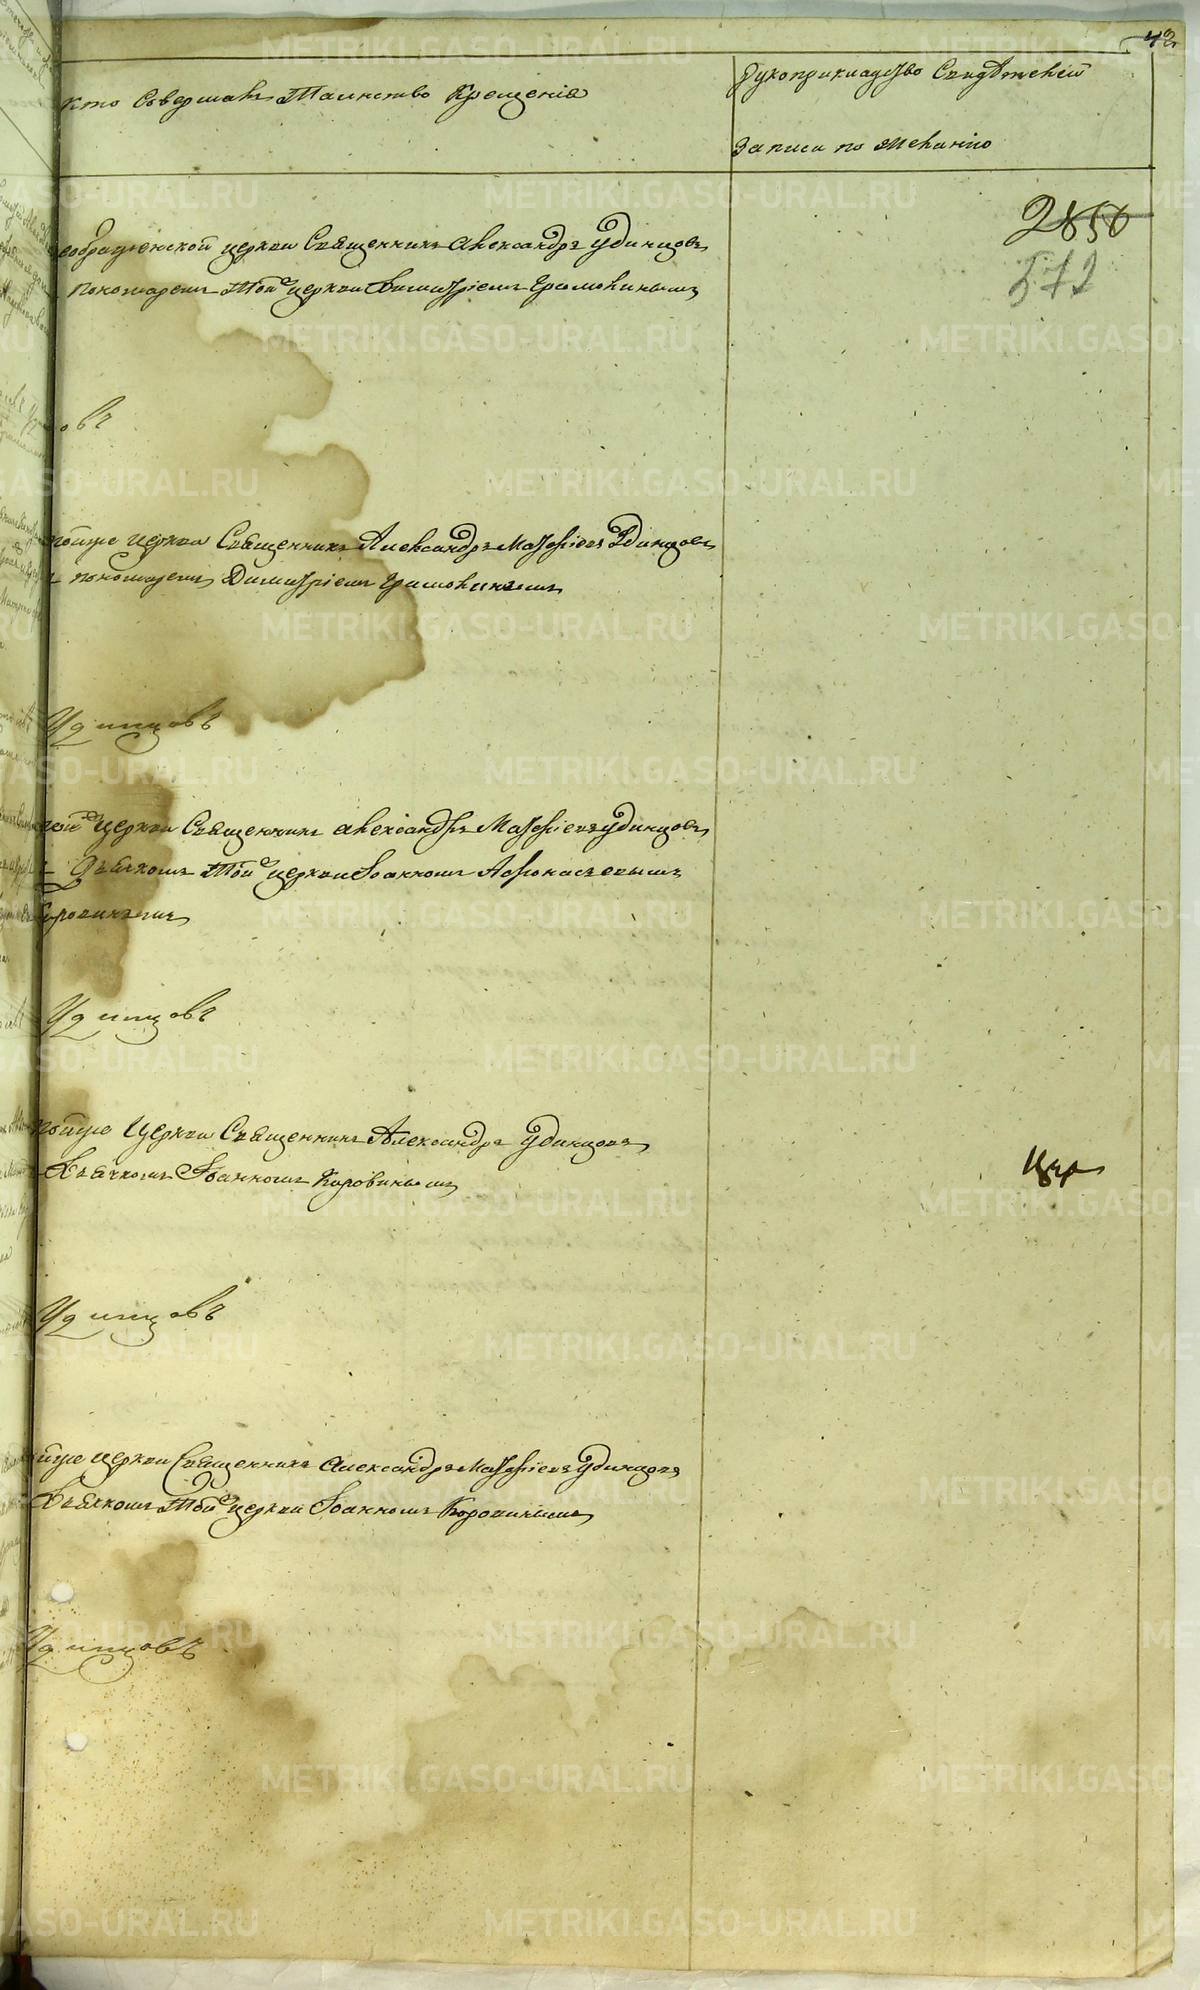 42
Кто Совершалъ Таинство Крещенія
Рукоприкладство Свидѣтелей
Записи по желанію
2850
572
еображенской церкви Священникъ Александръ Удинцовъ
Пономаремъ Той церкви Димитріемъ
овъ
тойже церкви Священникъ Александръ Матфіевъ Удинцовъ
пономаремъ Димитріемъ
Удинцовъ
церкви Священникъ Александръ Матфіевъ Удинцовъ
Дьячкомъ Той церкви Іоанномъ Афонасьевымъ
оровинымъ
Удинцовъ
тойже Церкви Священникъ Александръ Удинцовъ
Дьячкомъ Іоанномъ Коровинымъ
Удинцовъ
ойже церкви Священникъ Александръ Матфіевъ Удинцовъ
Дьячкомъ Той церкви Іоанномъ Коровинымъ
Удинцовъ
METRIKI.GASO-URAL.RU